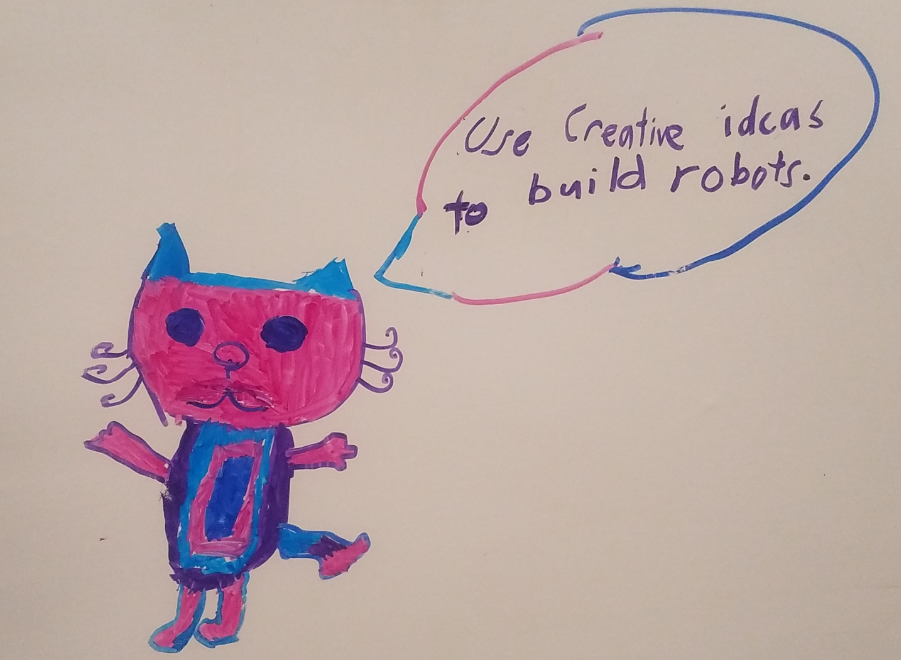 Use Creative ideas
to build robots.